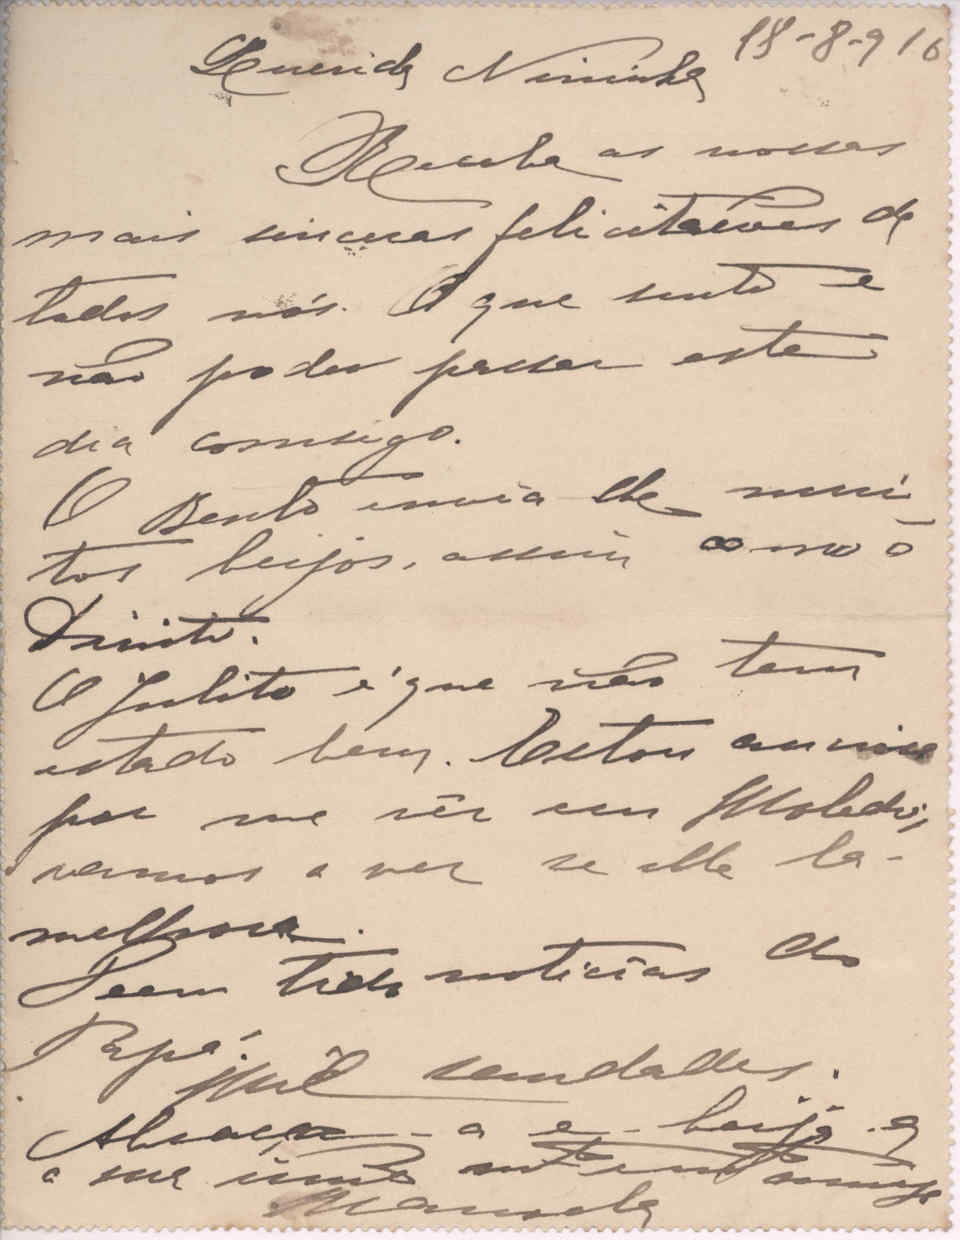 18-8-916
Querida Nininha
Receba as nossas
mais sinceras felicitações de
todos nós. O que sinto é
não poder passar este
dia comsigo.
O Bento envia lhe mui
tos beijos, assim como o
O Julito é que não tem
estado bem. Estou anciosa
por me vêr em Moledo,
vamos a ver se elle la
melhora.
Teem tido noticias do
Papá.
Mil saudades.
Abraça-a e beija-a
a sua muito amiga
Manuela